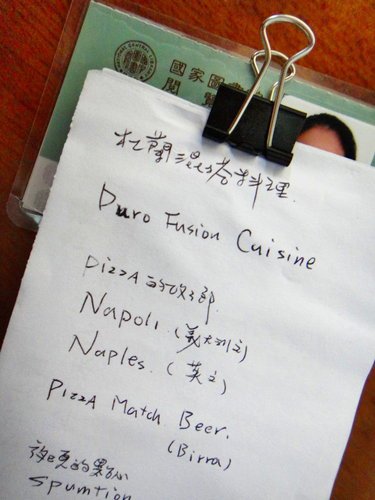 國家圖書
閱覽
杜蘭混搭料理
Duro Fusion Cuisine
PizzA 的故鄉
Napoli.(義大利文)
Naples.(英文)
PizzA Match Beer.
(Birra)
Spumtion